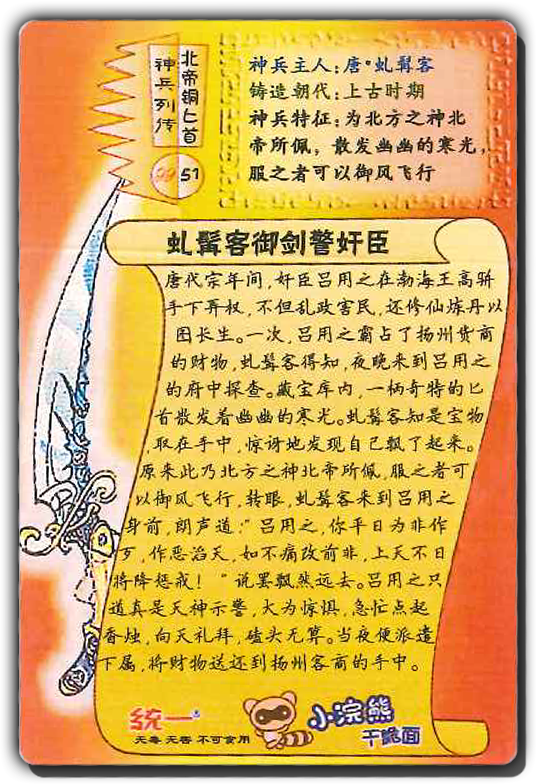 神兵列传
北帝铜匕首
99 51
神兵主人:唐·虬髯客
铸造朝代:上古时期
神兵特征:为北方之神北
帝所佩,散发幽幽的寒光,
服之者可以御风飞行
虬髯客御剑警奸臣
唐代宗年间,奸臣吕用之在渤海王高骈
手下弄权,不但乱政害民,还修仙炼丹以
图长生。一次,吕用之霸占了扬州货商
的财物,虬髯客得知,夜晚来到吕用之
的府中探查。藏宝库内,一柄奇特的匕
首散发着幽幽的寒光。虬髯客知是宝物
,取在手中,惊讶地发现自己飘了起来。
原来此乃北方之神北帝所佩,服之者可
以御风飞行,转眼,虬髯客来到吕用之
身前,朗声道:"吕用之,你平日为非作
歹,作恶滔天,如不痛改前非,上天不日
将降惩戒!"说罢飘然远去。吕用之只
道真是天神示警,大为惊惧,急忙点起
香烛,向天礼拜,磕头无算。当夜便派遣
下属,将财物送还到扬州客商的手中。
统一
无毒 无害 不可食用
小浣熊
干脆面